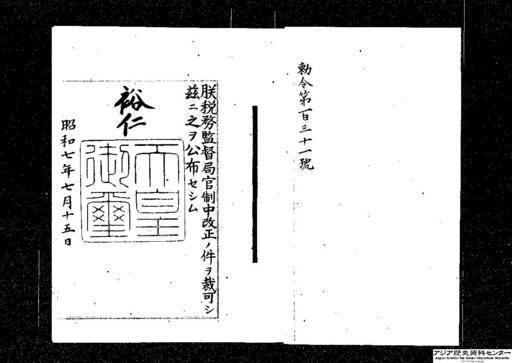 勅令第百三十一號
朕税務監督局官制中改正ノ件ヲ裁可シ
茲ニ之ヲ公布セシム
裕仁
天皇
御璽
昭和七年七月十五日
アジア歴史資料センター
Japan Center for Asian Historical Records